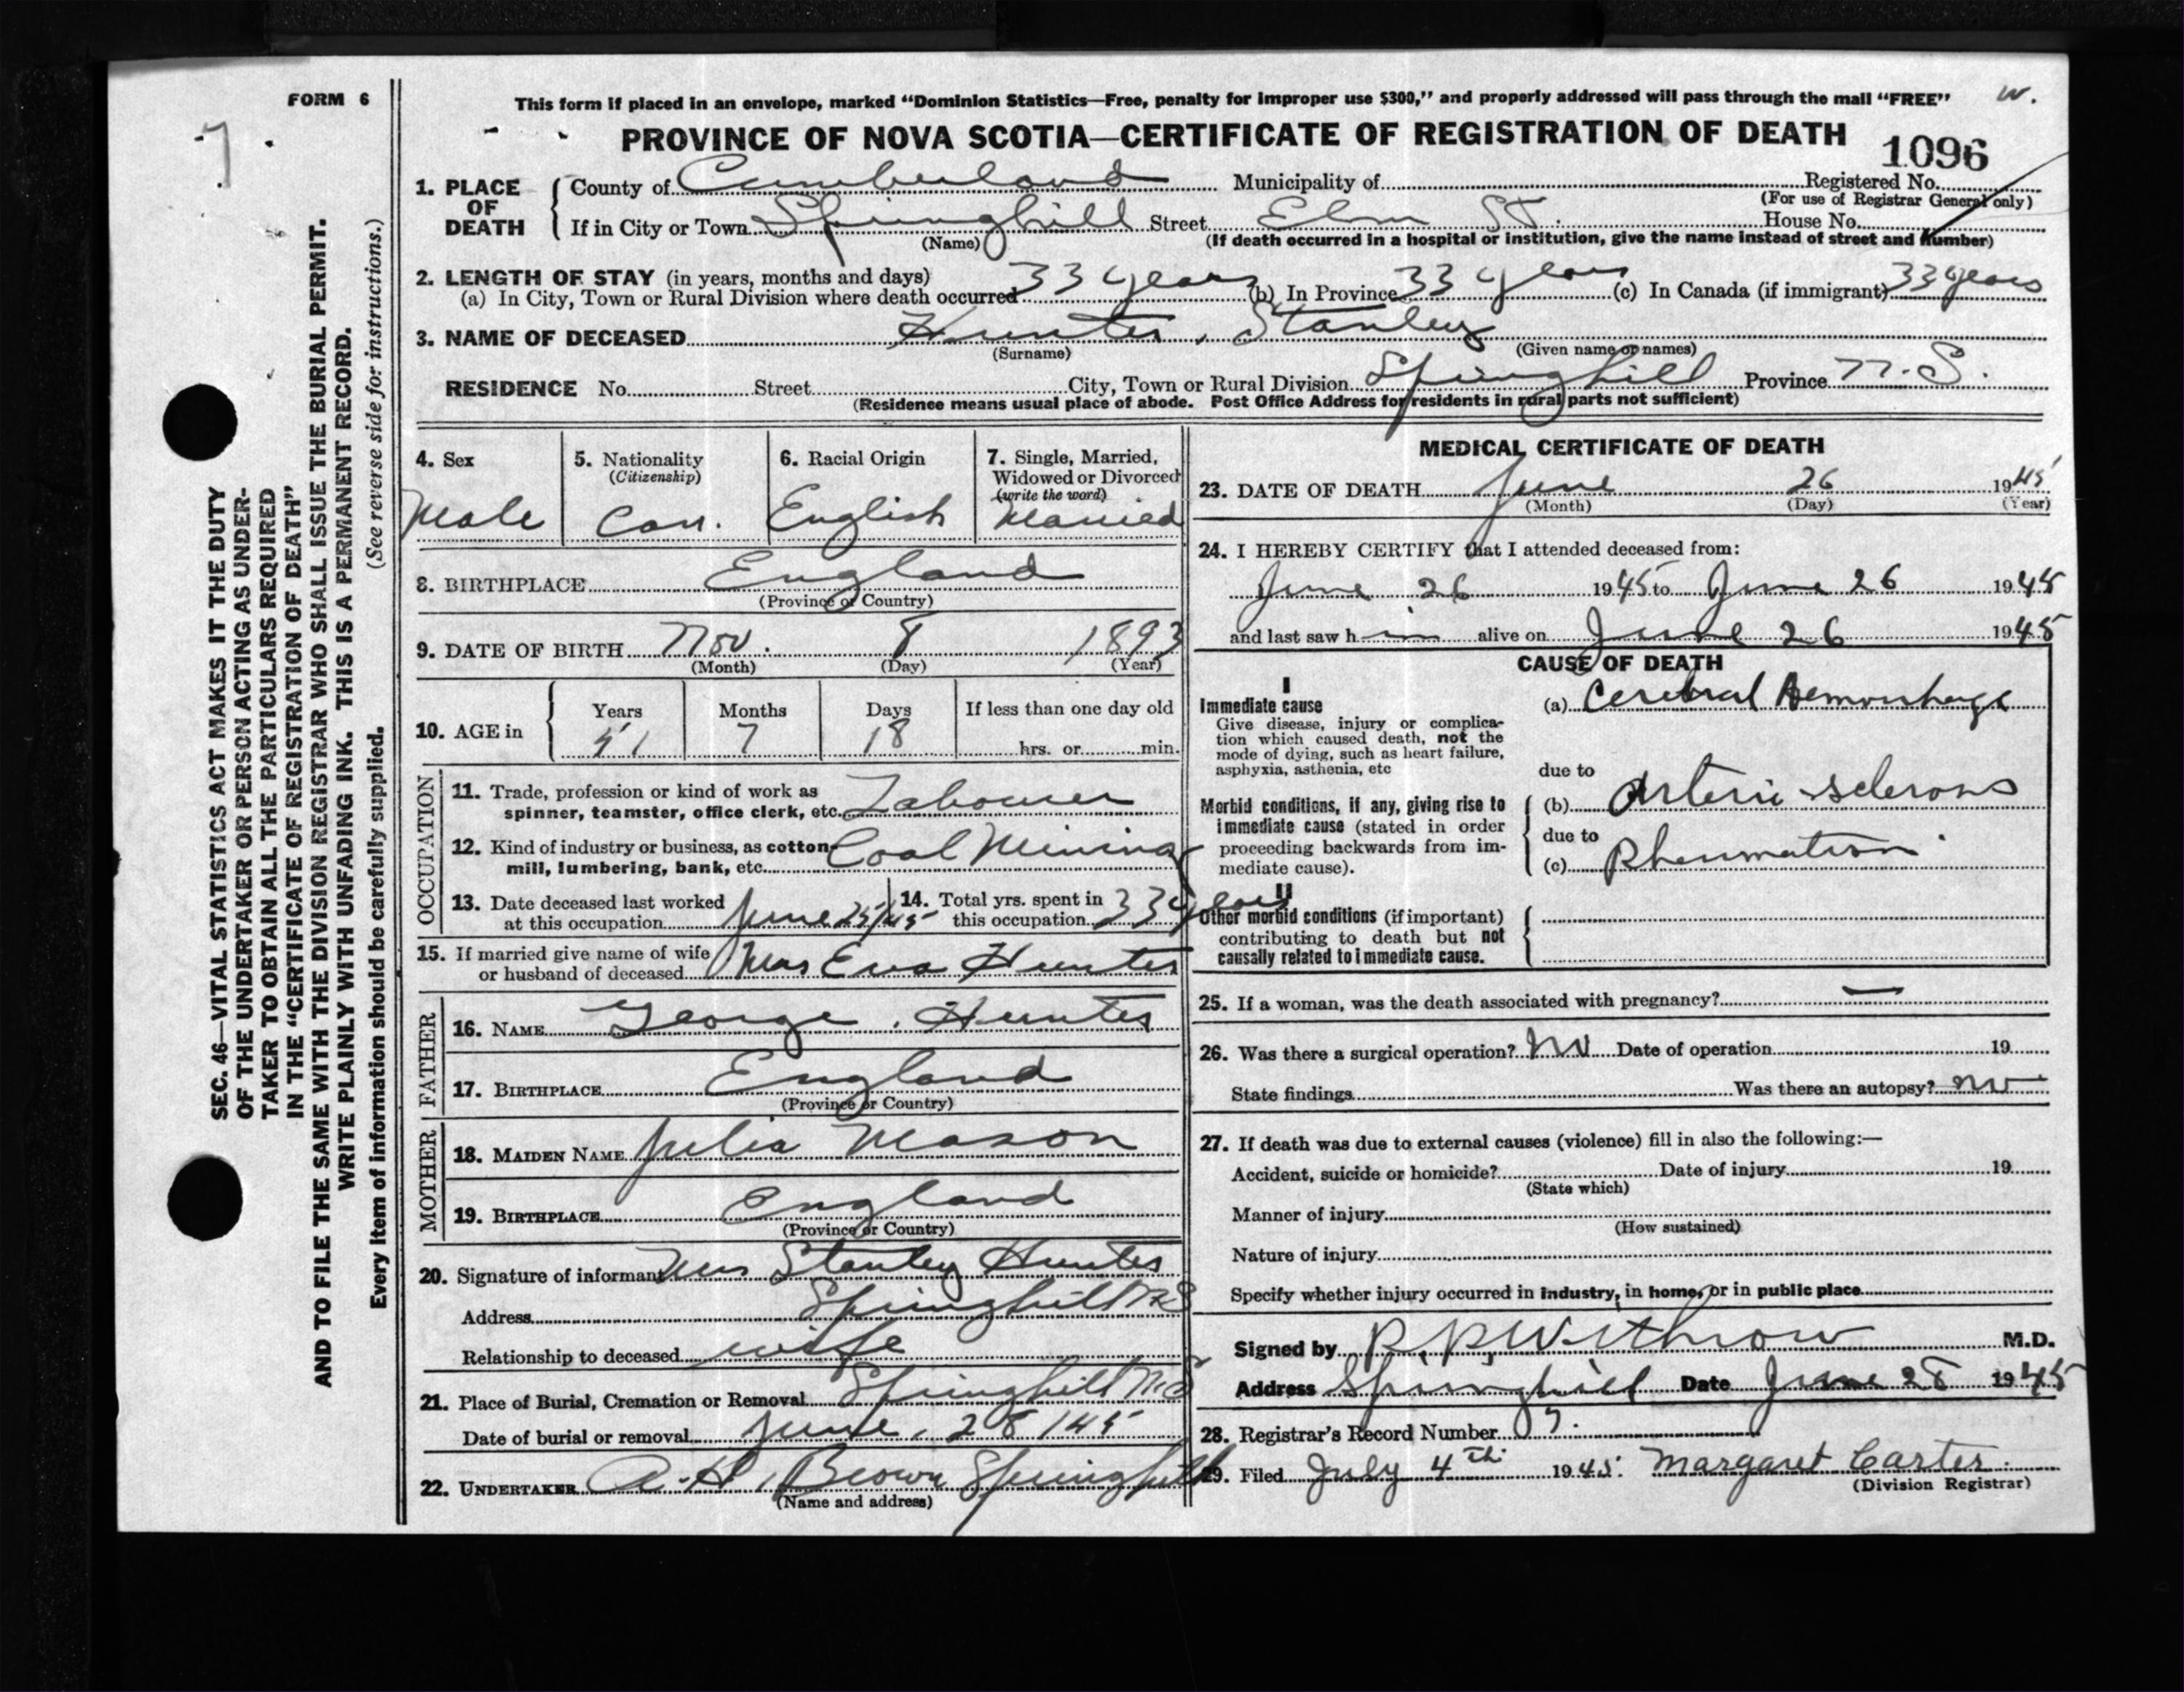 FORM 6
7
SEC. 46—VITAL STATISTICS ACT MAKES IT THE DUTY
OF THE UNDERTAKER OR PERSON ACTING AS UNDER-
TAKER TO OBTAIN ALL THE PARTICULARS REQUIRED
IN THE "CERTIFICATE OF REGISTRATION OF DEATH"
AND TO FILE THE SAME WITH THE DIVISION REGISTRAR WHO SHALL ISSUE THE BURIAL PERMIT.
WRITE PLAINLY WITH UNFADING INK. THIS IS A PERMANENT RECORD.
Every item of information should be carefully supplied. (See reverse side for instructions.)
This form if placed in an envelope, marked "Dominion Statistics—Free, penalty for improper use $300," and properly addressed will pass through the mail "FREE" W.
PROVINCE OF NOVA SCOTIA—CERTIFICATE OF REGISTRATION OF DEATH
1096
1. PLACE OF DEATH County of Cumberland Municipality of Registered No.
(For use of Registrar General only)
If in City or Town Springhill Street Elm St. House No.
(Name) (If death occurred in a hospital or institution, give the name instead of street and number)
2. LENGTH OF STAY (in years, months and days)
(a) In City, Town or Rural Division where death occurred 33 years (b) In Province 33 years (c) In Canada (if immigrant) 33 years
3. NAME OF DECEASED Hunter, Stanley
(Surname) (Given name or names)
RESIDENCE No. Street City, Town or Rural Division Springhill Province N.S.
(Residence means usual place of abode. Post Office Address for residents in rural parts not sufficient)
4. Sex
Male
5. Nationality
(Citizenship)
Can.
6. Racial Origin
English
7. Single, Married,
Widowed or Divorced
(write the word)
Married
8. BIRTHPLACE England
(Province or Country)
9. DATE OF BIRTH Nov. 8 1893
(Month) (Day) (Year)
10. AGE in Years Months Days If less than one day old
51 7 18 hrs. or min.
OCCUPATION
11. Trade, profession or kind of work as
spinner, teamster, office clerk, etc. Labourer
12. Kind of industry or business, as cotton
mill, lumbering, bank, etc. Coal Mining
13. Date deceased last worked
at this occupation June 25/45
14. Total yrs. spent in
this occupation 33 years
15. If married give name of wife
or husband of deceased Mrs Eva Hunter
FATHER
16. NAME George Hunter
17. BIRTHPLACE England
(Province or Country)
MOTHER
18. MAIDEN NAME Julia Mason
19. BIRTHPLACE England
(Province or Country)
20. Signature of informant Mrs Stanley Hunter
Address Springhill N.S
Relationship to deceased wife
21. Place of Burial, Cremation or Removal Springhill N.S
Date of burial or removal June, 28/45
22. UNDERTAKER A. H. Brown Springhill
(Name and address)
MEDICAL CERTIFICATE OF DEATH
23. DATE OF DEATH June 26 1945
(Month) (Day) (Year)
24. I HEREBY CERTIFY that I attended deceased from:
June 26 1945 to June 26 1945
and last saw h im alive on June 26 1945
CAUSE OF DEATH
I
Immediate cause
Give disease, injury or complica-
tion which caused death, not the
mode of dying, such as heart failure,
asphyxia, asthenia, etc
(a) Cerebral Hemorrhage
due to
Morbid conditions, if any, giving rise to
immediate cause (stated in order
proceeding backwards from im-
mediate cause).
(b) Arterio-sclerosis
due to
(c) Rheumatism
II
Other morbid conditions (if important)
contributing to death but not
causally related to immediate cause.
25. If a woman, was the death associated with pregnancy? —
26. Was there a surgical operation? No Date of operation 19
State findings Was there an autopsy? no
27. If death was due to external causes (violence) fill in also the following:—
Accident, suicide or homicide? Date of injury 19
(State which)
Manner of injury
(How sustained)
Nature of injury
Specify whether injury occurred in industry, in home, or in public place
Signed by R. P. Withrow M.D.
Address Springhill Date June 28 1945
28. Registrar's Record Number 7.
29. Filed July 4th 1945. Margaret Carter.
(Division Registrar)